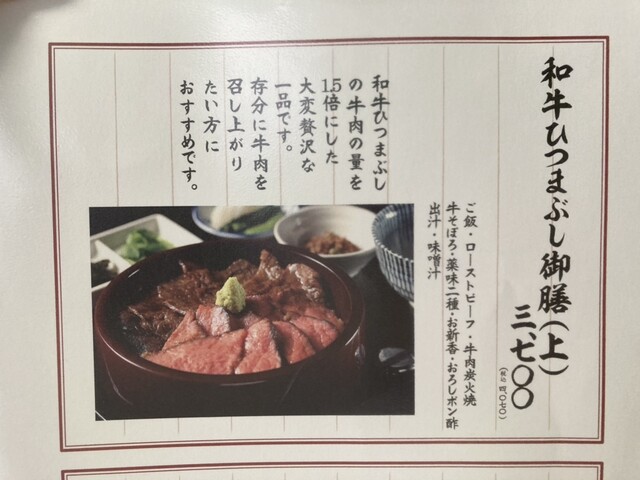 和牛ひつまぶし御膳（上）
三、七〇〇
（税込 四、〇七〇）
ご飯・ローストビーフ・牛肉炭火焼
牛そぼろ・薬味二種・お新香・おろしポン酢
出汁・味噌汁
和牛ひつまぶし
の牛肉の量を
1.5倍にした
大変贅沢な
一品です。
存分に牛肉を
召し上がり
たい方に
おすすめです。